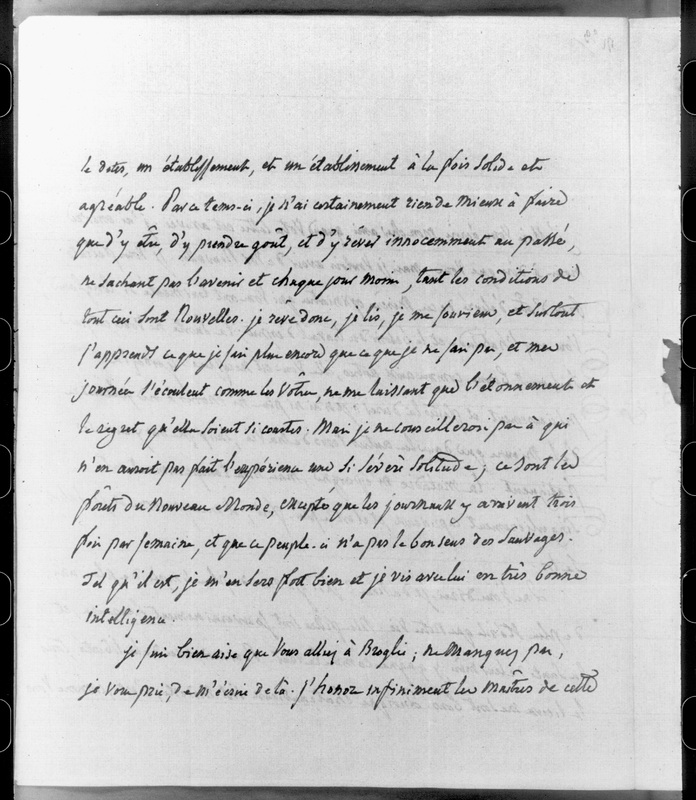 le dettes, un établissement, et un établissement à la fois solide et
agréable. Par ce tems-ci, je n'ai certainement rien de mieux à faire
que d'y être, d'y prendre goût, et d'y rêver innocemment au passé,
ne sachant pas l'avenir et chaque jour moins, tant les conditions de
tout ceci sont nouvelles. je rêve donc, je lis, je me souviens, et surtout
j'apprends ce que je sais plus encore que ce que je ne sais pas, et mes
journées s'écoulent comme les vôtres, ne me laissant que l'étonnement et
le regret qu'elles soient si courtes. Mais je ne conseillerois pas à qui
n'en auroit pas fait l'expérience une si sévère solitude; ce sont les
forêts du nouveau Monde, excepté que les journaux y arrivent trois
fois par semaine, et que ce peuple-ci n'a pas le bon sens des sauvages.
Tel qu'il est, je m'en sers fort bien et je vis avec lui en très bonne
intelligence.
je suis bien aise que vous alliez à Broglie; ne manquez pas,
je vous prie, de m'écrire de là. j'honore infiniment les maîtres de cette